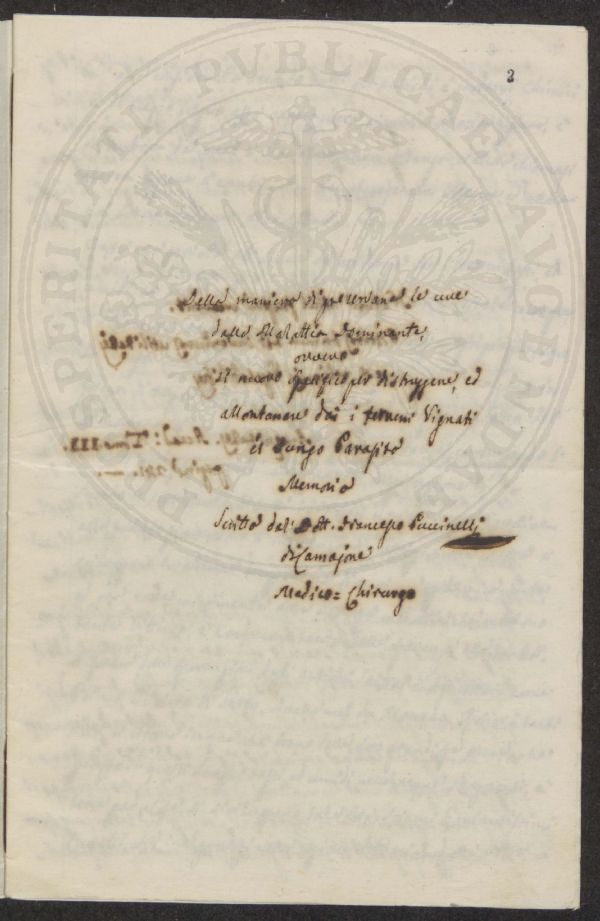 2
Della maniera di preservare le uve
dalla Malattia Dominante,
ovvero
Di nuovo Specifico per distruggere, ed
allontanare dai i terreni Vignati
il Fungo Parasito
Memoria
Scritta dal Dott. Francesco Puccinelli
di Camajore
Medico=Chirurgo
PROSPERITATI PVBLICAE AVGENDAE